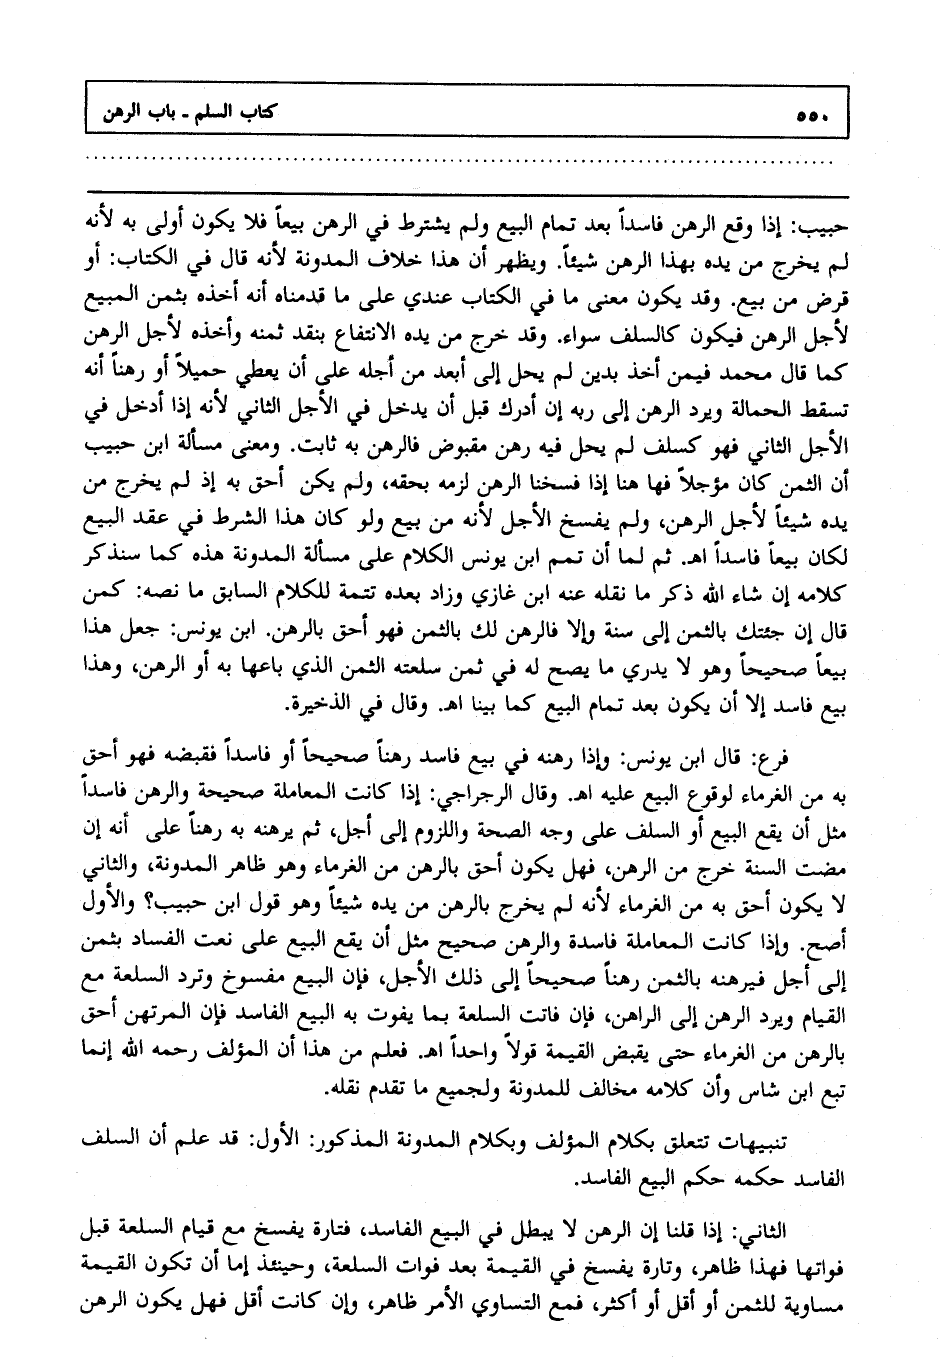 ٥٥٠ كتاب السلم - باب الرهن
حبيب: إذا وقع الرهن فاسداً بعد تمام البيع ولم يشترط في الرهن بيعاً فلا يكون أولى به لأنه
لم يخرج من يده بهذا الرهن شيئاً. ويظهر أن هذا خلاف المدونة لأنه قال في الكتاب: أو
قرض من بيع. وقد يكون معنى ما في الكتاب عندي على ما قدمناه أنه أخذه بثمن المبيع
لأجل الرهن فيكون كالسلف سواء. وقد خرج من يده الانتفاع بنقد ثمنه وأخذه لأجل الرهن
كما قال محمد فيمن أخذ بدين لم يحل إلى أبعد من أجله على أن يعطي حميلاً أو رهناً أنه
تسقط الحمالة ويرد الرهن إلى ربه إن أدرك قبل أن يدخل في الأجل الثاني لأنه إذا أدخل في
الأجل الثاني فهو كسلف لم يحل فيه رهن مقبوض فالرهن به ثابت. ومعنى مسألة ابن حبيب
أن الثمن كان مؤجلاً فها هنا إذا فسخنا الرهن لزمه بحقه، ولم يكن أحق به إذ لم يخرج من
يده شيئاً لأجل الرهن، ولم يفسخ الأجل لأنه من بيع ولو كان هذا الشرط في عقد البيع
لكان بيعاً فاسداً اهـ. ثم لما أن تمم ابن يونس الكلام على مسألة المدونة هذه كما سنذكر
كلامه إن شاء الله ذكر ما نقله عنه ابن غازي وزاد بعده تتمة للكلام السابق ما نصه: كمن
قال إن جئتك بالثمن إلى سنة وإلا فالرهن لك بالثمن فهو أحق بالرهن. ابن يونس: جعل هذا
بيعاً صحيحاً وهو لا يدري ما يصح له في ثمن سلعته الثمن الذي باعها به أو الرهن، وهذا
بيع فاسد إلا أن يكون بعد تمام البيع كما بينا اهـ. وقال في الذخيرة.
فرع: قال ابن يونس: وإذا رهنه في بيع فاسد رهناً صحيحاً أو فاسداً فقبضه فهو أحق
به من الغرماء لوقوع البيع عليه اهـ. وقال الرجراجي: إذا كانت المعاملة صحيحة والرهن فاسداً
مثل أن يقع البيع أو السلف على وجه الصحة واللزوم إلى أجل، ثم يرهنه به رهناً على أنه إن
مضت السنة خرج من الرهن، فهل يكون أحق بالرهن من الغرماء وهو ظاهر المدونة، والثاني
لا يكون أحق به من الغرماء لأنه لم يخرج بالرهن من يده شيئاً وهو قول ابن حبيب؟ والأول
أصح. وإذا كانت المعاملة فاسدة والرهن صحيح مثل أن يقع البيع على نعت الفساد بثمن
إلى أجل فيرهنه بالثمن رهناً صحيحاً إلى ذلك الأجل، فإن البيع مفسوخ وترد السلعة مع
القيام ويرد الرهن إلى الراهن، فإن فاتت السلعة بما يفوت به البيع الفاسد فإن المرتهن أحق
بالرهن من الغرماء حتى يقبض القيمة قولاً واحداً اهـ. فعلم من هذا أن المؤلف رحمه الله إنما
تبع ابن شاس وأن كلامه مخالف للمدونة ولجميع ما تقدم نقله.
تنبيهات تتعلق بكلام المؤلف وبكلام المدونة المذكور: الأول: قد علم أن السلف
الفاسد حكمه حكم البيع الفاسد.
الثاني: إذا قلنا إن الرهن لا يبطل في البيع الفاسد، فتارة يفسخ مع قيام السلعة قبل
فواتها فهذا ظاهر، وتارة يفسخ في القيمة بعد فوات السلعة، وحينئذ إما أن تكون القيمة
مساوية للثمن أو أقل أو أكثر، فمع التساوي الأمر ظاهر، وإن كانت أقل فهل يكون الرهن